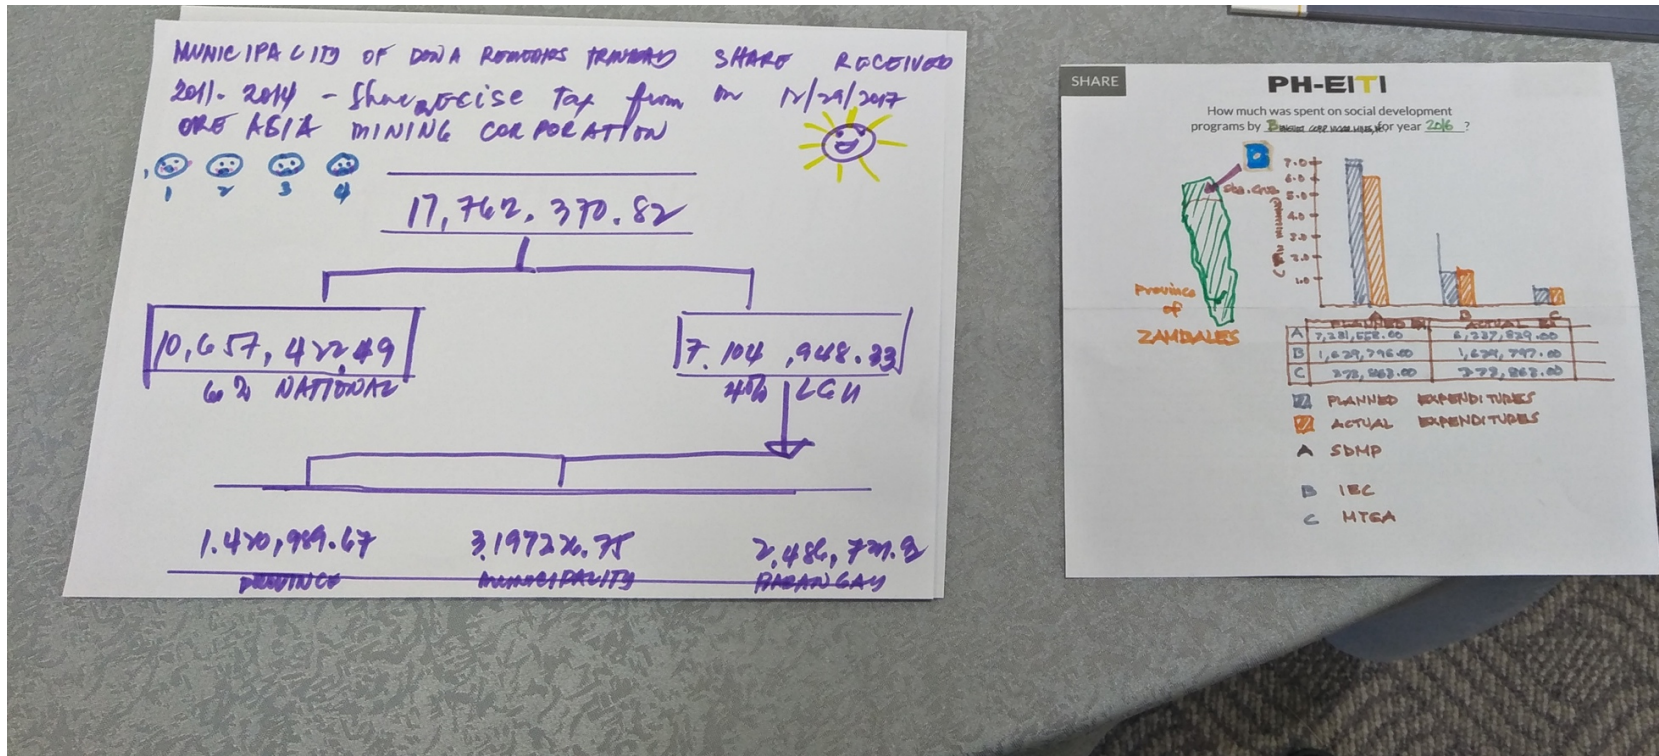 MUNICIPALITY OF DONA REMEDIOS TRINIDAD SHARE RECEIVED
2011-2014 - Share Excise Tax from on 12/29/2017
ORE ASIA MINING CORPORATION
1 2 3 4
17,762,370.82
10,657,422.49
60% NATIONAL
7.104,948.33
40% LGU
1.420,989.67
PROVINCE
3.197226.75
MUNICIPALITY
BARANGAY
SHARE
PH-EITI
How much was spent on social development
programs by for year 2016 ?
D
Sta. Cruz
Province
of
ZAMBALES
7.0
6.0
5.0
4.0
3.0
2.0
1.0
A B C
PLANNED EX ACTUAL EX
A 6,237,829.00
B 1,629,796.00 1,629,797.00
C 373,868.00 373,868.00
PLANNED EXPENDITURES
ACTUAL EXPENDITURES
A SDMP
B IEC
C MTGA